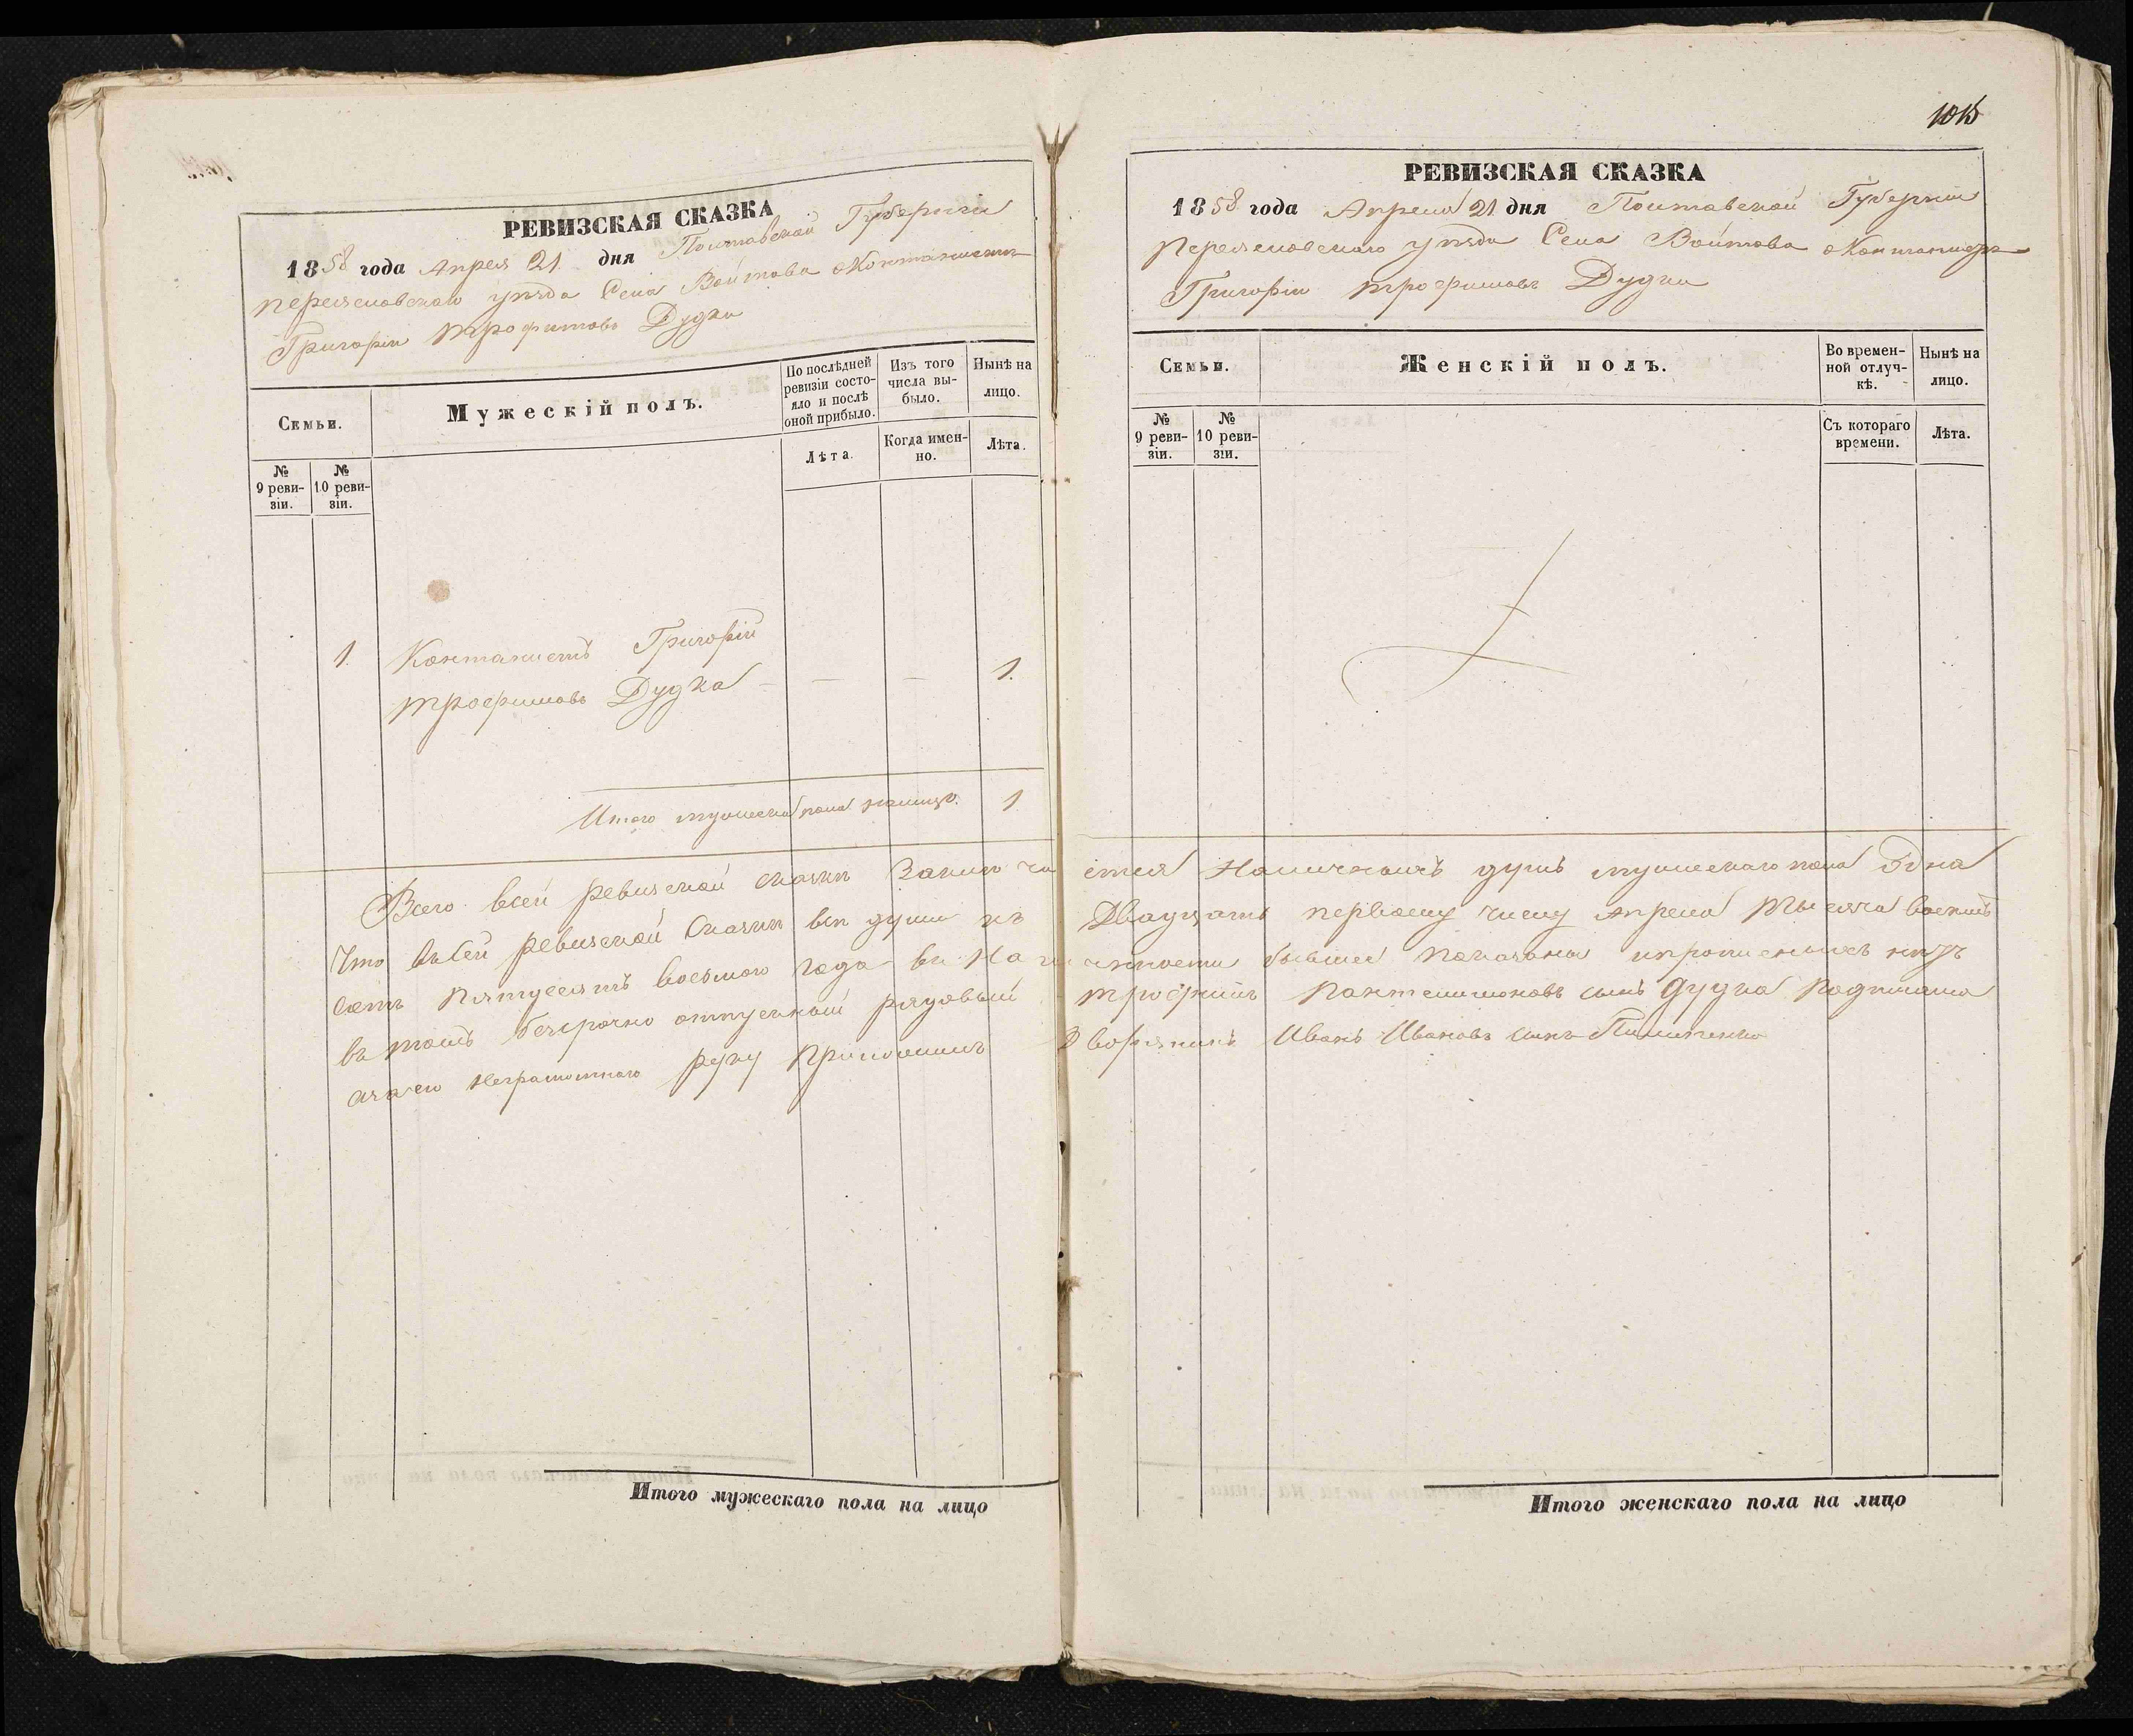 РЕВИЗСКАЯ СКАЗКА
1858 года Апреля 21 дня Полтавской Губернии
Переяславского уезда Села Войтова о Кантонисте
Григории Трофимове Дудке
Семьи.
Мужескій полъ.
По послѣдней ревизіи состояло и послѣ оной прибыло.
Изъ того числа выбыло.
Нынѣ на лицо.
№ 9 ревизіи.
№ 10 ревизіи.
Лѣта.
Когда именно.
Лѣта.
1. Кантонистъ Григорій
Трофимовъ Дудка - — — 1.
Итого мужеска пола налицо. 1
Итого мужескаго пола на лицо
1015
РЕВИЗСКАЯ СКАЗКА
1858 года Апреля 21 дня Полтавской Губерніи
Переяславского уезда Села Войтова о Кантонисте
Григоріи Трофимове Дудке
Семьи.
Женскій полъ.
Во временной отлучкѣ.
Нынѣ на лицо.
№ 9 ревизіи.
№ 10 ревизіи.
Съ котораго времени.
Лѣта.
Всего всей ревизской сказки заключается Наличныхъ душъ мужескаго пола Одна
Что въ сей ревизской Сказки вси души къ Двадцать первому числу Апреля Тысяча восемь
сотъ Пятдесятъ восьмого года въ наличности бывшея показаны и прописныхъ нѣтъ
въ томъ безсрочно отпускной рядовый Трофимъ Пантелимоновъ сынъ Дудка Подписался
а за его неграмотного руку Приложилъ Дворянинъ Иванъ Ивановъ сынъ
Итого женскаго пола на лицо